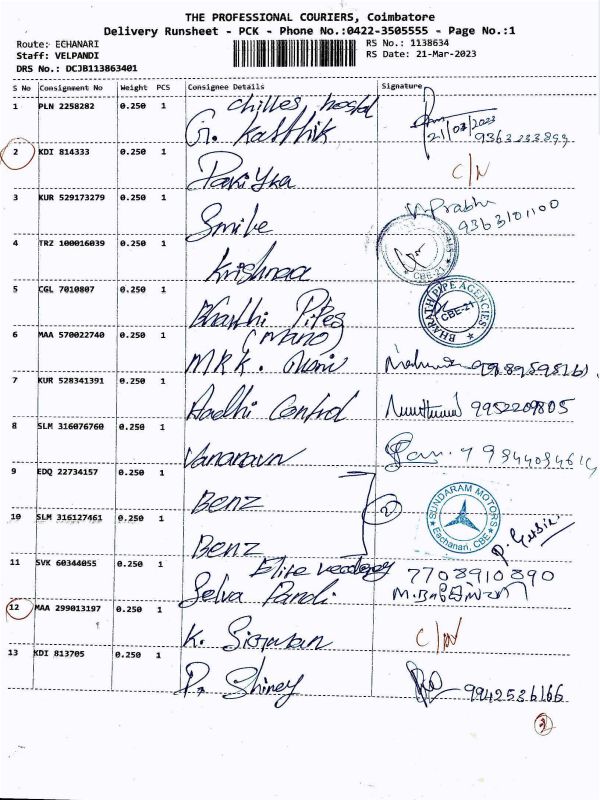 THE PROFESSIONAL COURIERS, Coimbatore
Delivery Runsheet - PCK - Phone No.:0422-3505555 - Page No.:1
Route: ECHANARI
RS No.: 1138634
Staff: VELPANDI
RS Date: 21-Mar-2023
DRS No.: DCJB113863401
S No Consignment No Weight PCS Consignee Details Signature
1 PLN 2258282 0.250 1 chilles hostel
G. Karthik
21/03/2023
9363233899
2 KDI 814333 0.250 1
C/N
3 KUR 529173279 0.250 1 Smile
Prabhu
9363101100
4 TRZ 100016039 0.250 1 Krishnaa
CBE-21
5 CGL 7010807 0.250 1 Bharthi Pipes
BHARATH PIPE AGENCIES
CBE-21
6 MAA 570022740 0.250 1 (Mano)
M.R.K. Mani
7 KUR 528341391 0.250 1 Aadhi Control 9952209805
8 SLM 316076760 0.250 1
9 EDQ 22734157 0.250 1 Benz
2
SUNDARAM MOTORS
Eachanari, CBE
10 SLM 316127461 0.250 1 Benz
11 SVK 60344055 0.250 1 Elite
Selva Pandi
7708910890
12 MAA 299013197 0.250 1 K.
C/N
13 KDI 813705 0.250 1 P. Shiney
9942536166
2